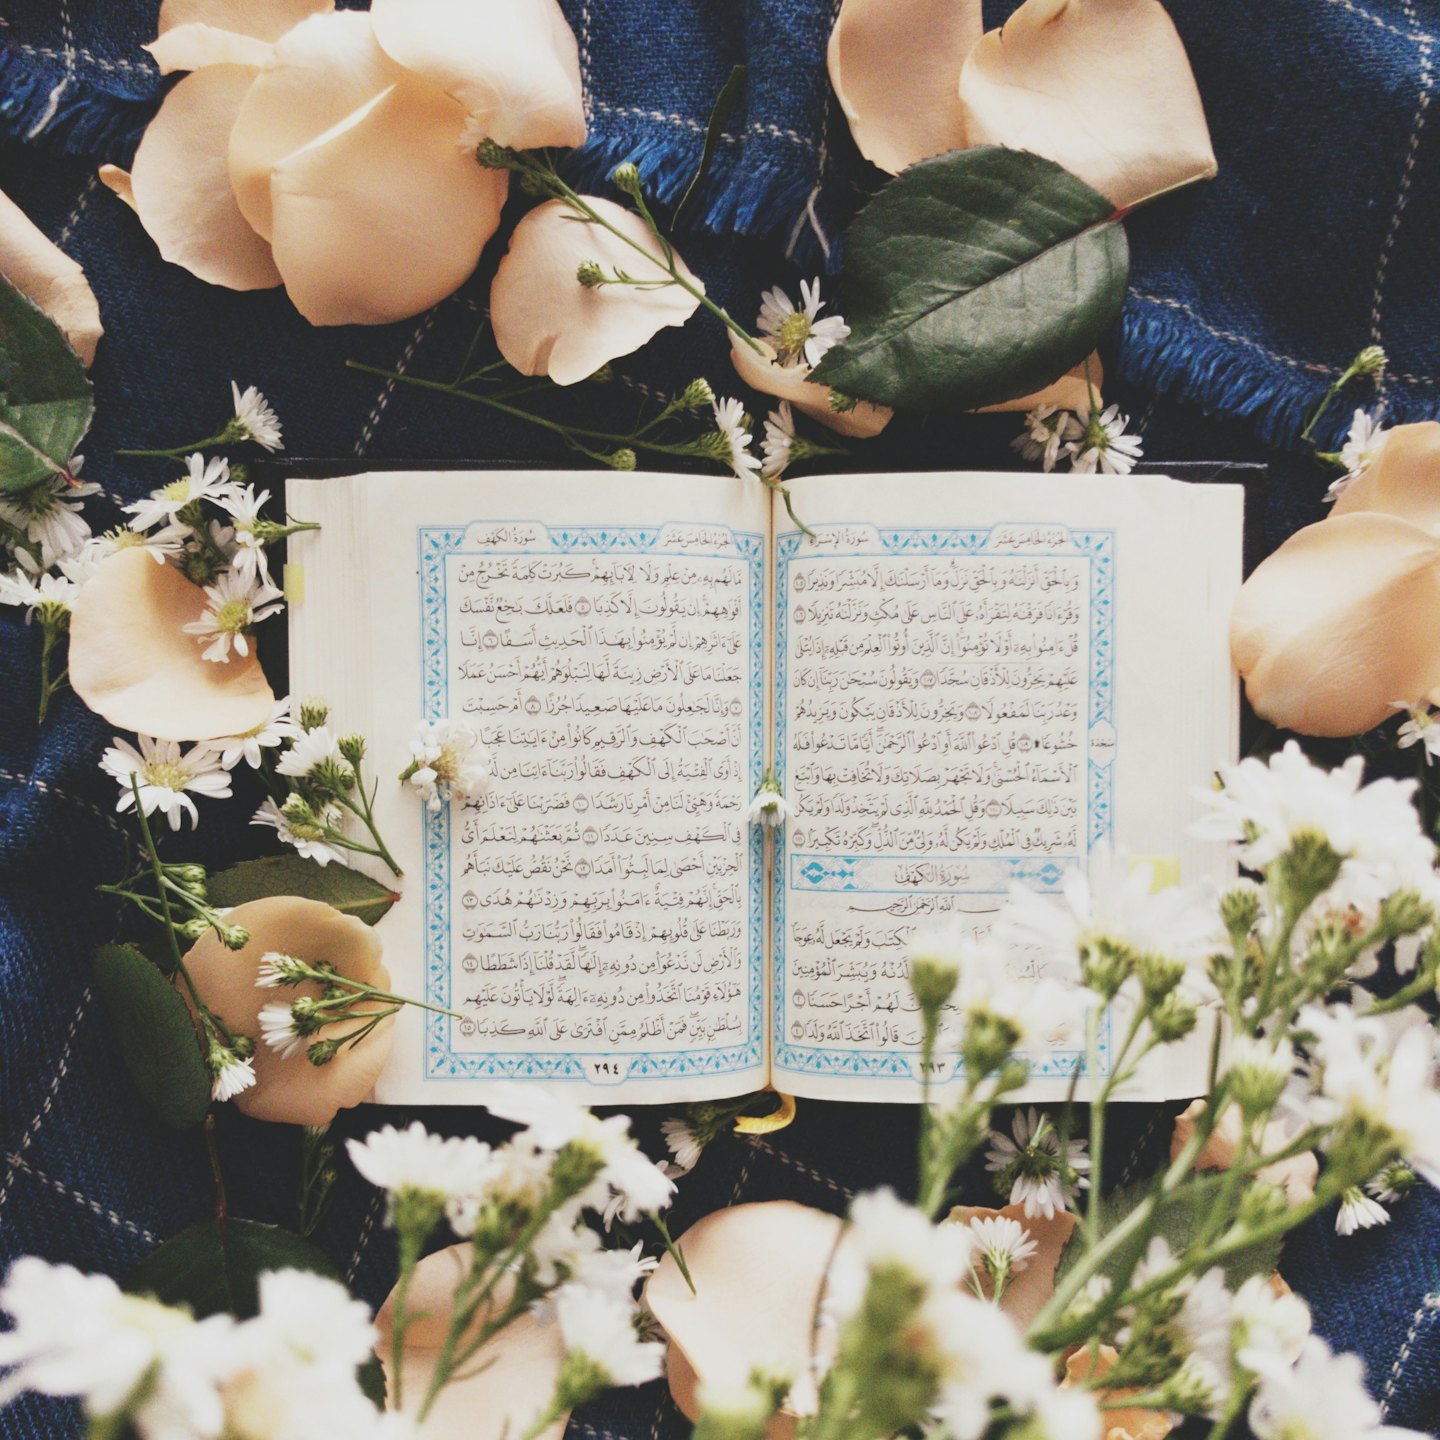 سُورَةُ الإِسْرَاءِ
الجُزْءُ الخَامِسَ عَشَرَ
وَبِالْحَقِّ أَنزَلْنَاهُ وَبِالْحَقِّ نَزَلَ ۗ وَمَا أَرْسَلْنَاكَ إِلَّا مُبَشِّرًا وَنَذِيرًا ١٠٥
وَقُرْءَانًا فَرَقْنَاهُ لِتَقْرَأَهُ عَلَى النَّاسِ عَلَىٰ مُكْثٍ وَنَزَّلْنَاهُ تَنزِيلًا ١٠٦
قُلْ ءَامِنُوا بِهِ أَوْ لَا تُؤْمِنُوا ۚ إِنَّ الَّذِينَ أُوتُوا الْعِلْمَ مِن قَبْلِهِ إِذَا يُتْلَىٰ
عَلَيْهِمْ يَخِرُّونَ لِلْأَذْقَانِ سُجَّدًا ١٠٧ وَيَقُولُونَ سُبْحَانَ رَبِّنَا إِن كَانَ
وَعْدُ رَبِّنَا لَمَفْعُولًا ١٠٨ وَيَخِرُّونَ لِلْأَذْقَانِ يَبْكُونَ وَيَزِيدُهُمْ
خُشُوعًا ۩ ١٠٩ قُلِ ادْعُوا اللَّهَ أَوِ ادْعُوا الرَّحْمَٰنَ ۖ أَيًّا مَّا تَدْعُوا فَلَهُ
سَجْدَة
الْأَسْمَاءُ الْحُسْنَىٰ ۚ وَلَا تَجْهَرْ بِصَلَاتِكَ وَلَا تُخَافِتْ بِهَا وَابْتَغِ
بَيْنَ ذَٰلِكَ سَبِيلًا ١١٠ وَقُلِ الْحَمْدُ لِلَّهِ الَّذِي لَمْ يَتَّخِذْ وَلَدًا وَلَمْ يَكُن
لَّهُ شَرِيكٌ فِي الْمُلْكِ وَلَمْ يَكُن لَّهُ وَلِيٌّ مِّنَ الذُّلِّ ۖ وَكَبِّرْهُ تَكْبِيرًا ١١١
سُورَةُ الْكَهْفِ
اللَّهِ الرَّحْمَٰنِ الرَّحِيمِ
الْكِتَابَ وَلَمْ يَجْعَل لَّهُ عِوَجًا
لَّدُنْهُ وَيُبَشِّرَ الْمُؤْمِنِينَ
لَهُمْ أَجْرًا حَسَنًا ٢
قَالُوا اتَّخَذَ اللَّهُ وَلَدًا ٤
٢٩٣
سُورَةُ الكَهْفِ
الجُزْءُ الخَامِسَ عَشَرَ
مَّا لَهُم بِهِ مِنْ عِلْمٍ وَلَا لِآبَائِهِمْ ۚ كَبُرَتْ كَلِمَةً تَخْرُجُ مِنْ
أَفْوَاهِهِمْ ۚ إِن يَقُولُونَ إِلَّا كَذِبًا ٥ فَلَعَلَّكَ بَاخِعٌ نَّفْسَكَ
عَلَىٰ ءَاثَارِهِمْ إِن لَّمْ يُؤْمِنُوا بِهَٰذَا الْحَدِيثِ أَسَفًا ٦ إِنَّا
جَعَلْنَا مَا عَلَى الْأَرْضِ زِينَةً لَّهَا لِنَبْلُوَهُمْ أَيُّهُمْ أَحْسَنُ عَمَلًا
٧ وَإِنَّا لَجَاعِلُونَ مَا عَلَيْهَا صَعِيدًا جُرُزًا ٨ أَمْ حَسِبْتَ
أَنَّ أَصْحَابَ الْكَهْفِ وَالرَّقِيمِ كَانُوا مِنْ ءَايَاتِنَا عَجَبًا
إِذْ أَوَى الْفِتْيَةُ إِلَى الْكَهْفِ فَقَالُوا رَبَّنَا ءَاتِنَا مِن
رَحْمَةً وَهَيِّئْ لَنَا مِنْ أَمْرِنَا رَشَدًا ١٠ فَضَرَبْنَا عَلَىٰ ءَاذَانِهِمْ
فِي الْكَهْفِ سِنِينَ عَدَدًا ١١ ثُمَّ بَعَثْنَاهُمْ لِنَعْلَمَ أَيُّ
الْحِزْبَيْنِ أَحْصَىٰ لِمَا لَبِثُوا أَمَدًا ١٢ نَّحْنُ نَقُصُّ عَلَيْكَ نَبَأَهُم
بِالْحَقِّ ۚ إِنَّهُمْ فِتْيَةٌ ءَامَنُوا بِرَبِّهِمْ وَزِدْنَاهُمْ هُدًى ١٣
وَرَبَطْنَا عَلَىٰ قُلُوبِهِمْ إِذْ قَامُوا فَقَالُوا رَبُّنَا رَبُّ السَّمَاوَاتِ
وَالْأَرْضِ لَن نَّدْعُوَ مِن دُونِهِ إِلَٰهًا ۖ لَّقَدْ قُلْنَا إِذًا شَطَطًا ١٤
هَٰؤُلَاءِ قَوْمُنَا اتَّخَذُوا مِن دُونِهِ ءَالِهَةً ۖ لَّوْلَا يَأْتُونَ عَلَيْهِم
بِسُلْطَانٍ بَيِّنٍ ۖ فَمَنْ أَظْلَمُ مِمَّنِ افْتَرَىٰ عَلَى اللَّهِ كَذِبًا ١٥
٢٩٤